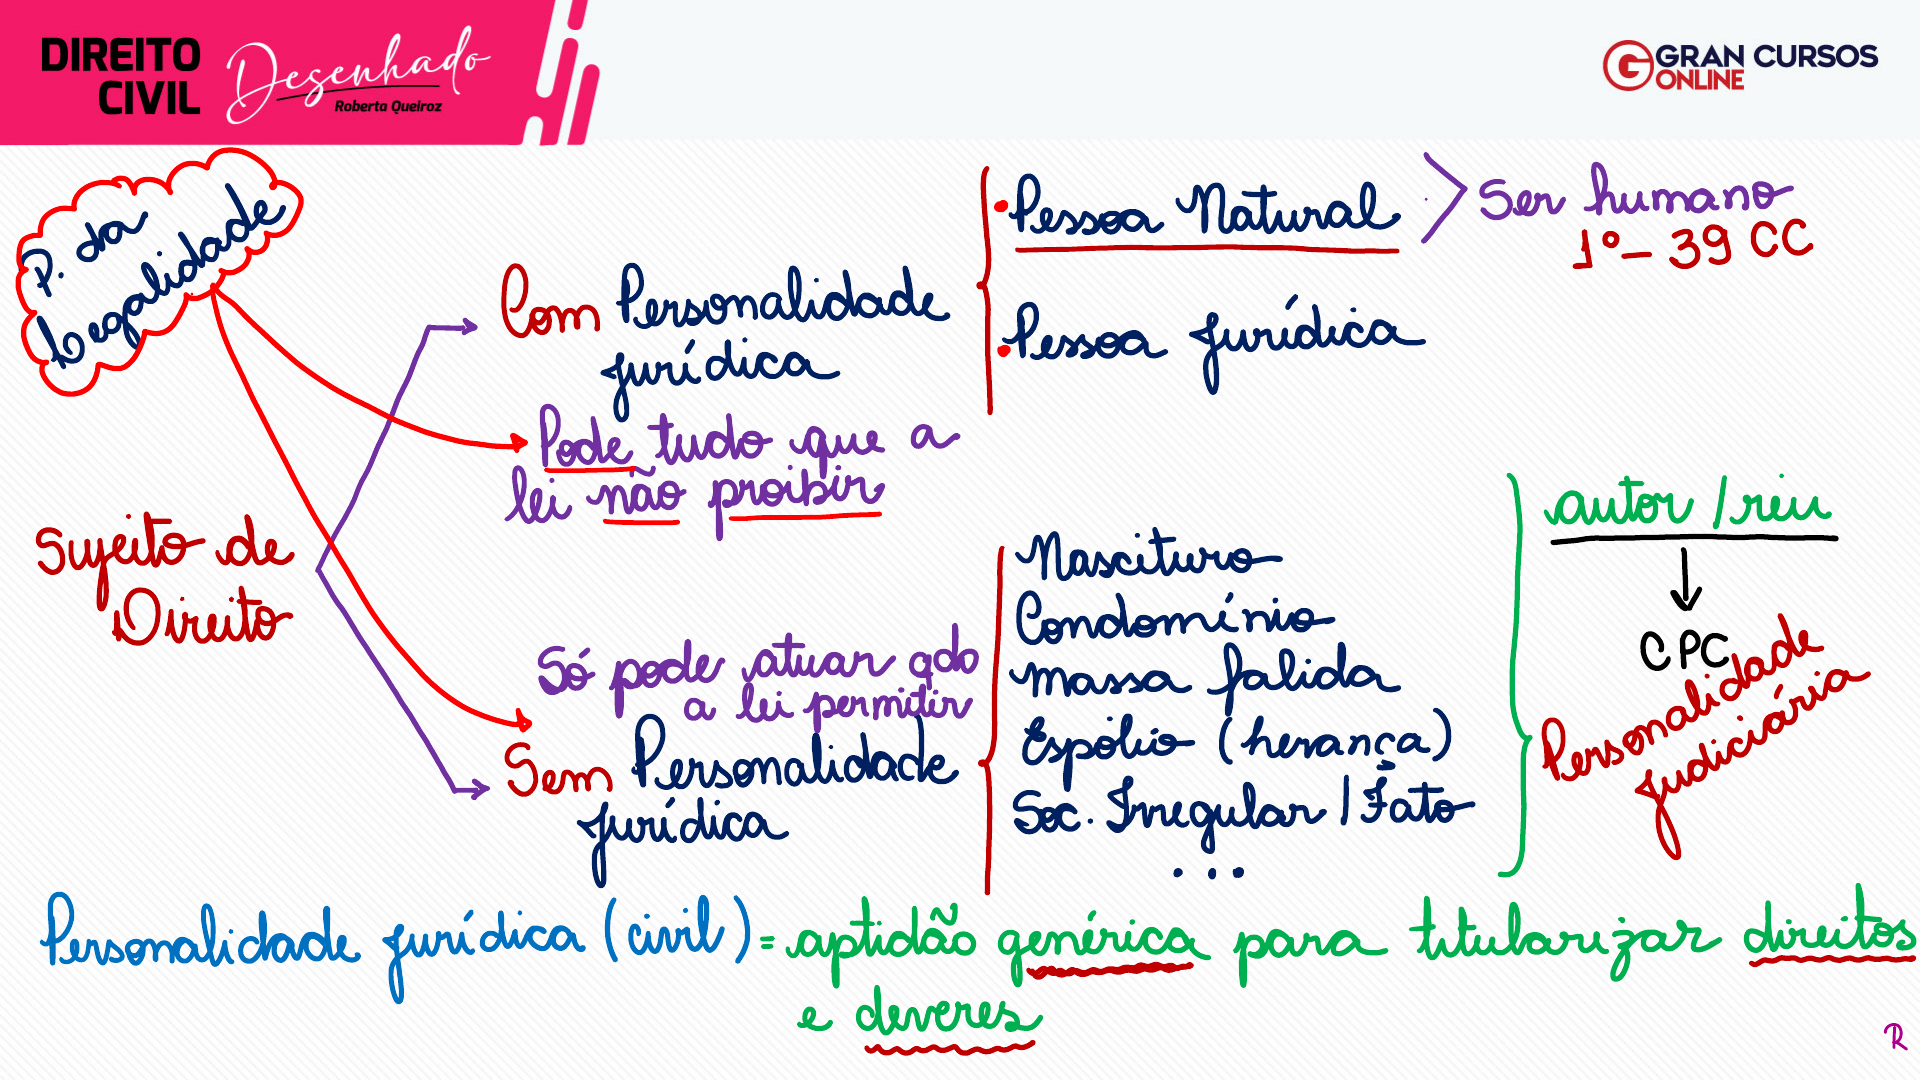 DIREITO
CIVIL
Desenhado
Roberta Queiroz
GRAN CURSOS
ONLINE
P. da
Legalidade
Sujeito de
Direito
Com Personalidade
jurídica
Pode tudo que a
lei não proibir
• Pessoa Natural
Ser humano
1º - 39 CC
• Pessoa Jurídica
Só pode atuar qdo
a lei permitir
Sem Personalidade
jurídica
Nascituro
Condomínio
Massa falida
Espólio (herança)
Soc. Irregular / Fato
...
autor / réu
CPC
Personalidade
judiciária
Personalidade jurídica (civil) = aptidão genérica para titularizar direitos
e deveres
R